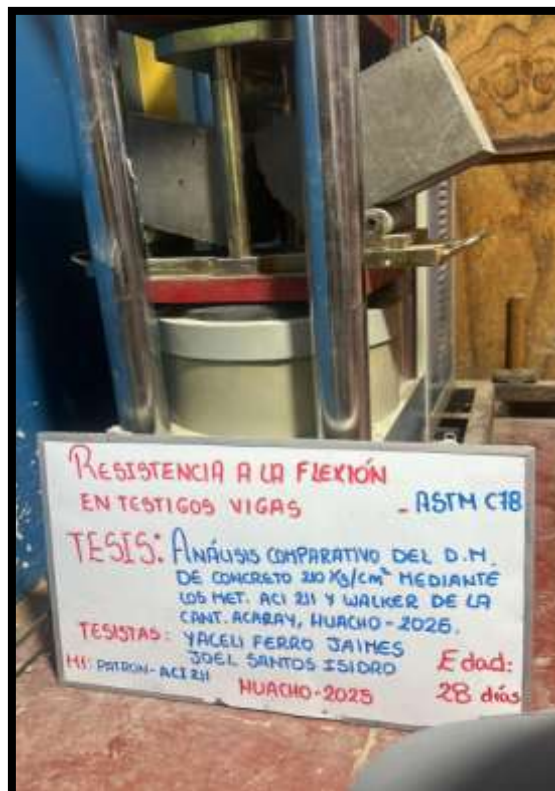 RESISTENCIA A LA FLEXIÓN
EN TESTIGOS VIGAS - ASTM C78
TESIS: ANÁLISIS COMPARATIVO DEL D.M.
DE CONCRETO 210 Kg/cm² MEDIANTE
LOS MET. ACI 211 Y WALKER DE LA
CANT. ACARAY, HUACHO-2025.
TESISTAS: YACELI FERRO JAIMES
JOEL SANTOS ISIDRO
Edad:
M1: PATRON-ACI 211
HUACHO-2025
28 días